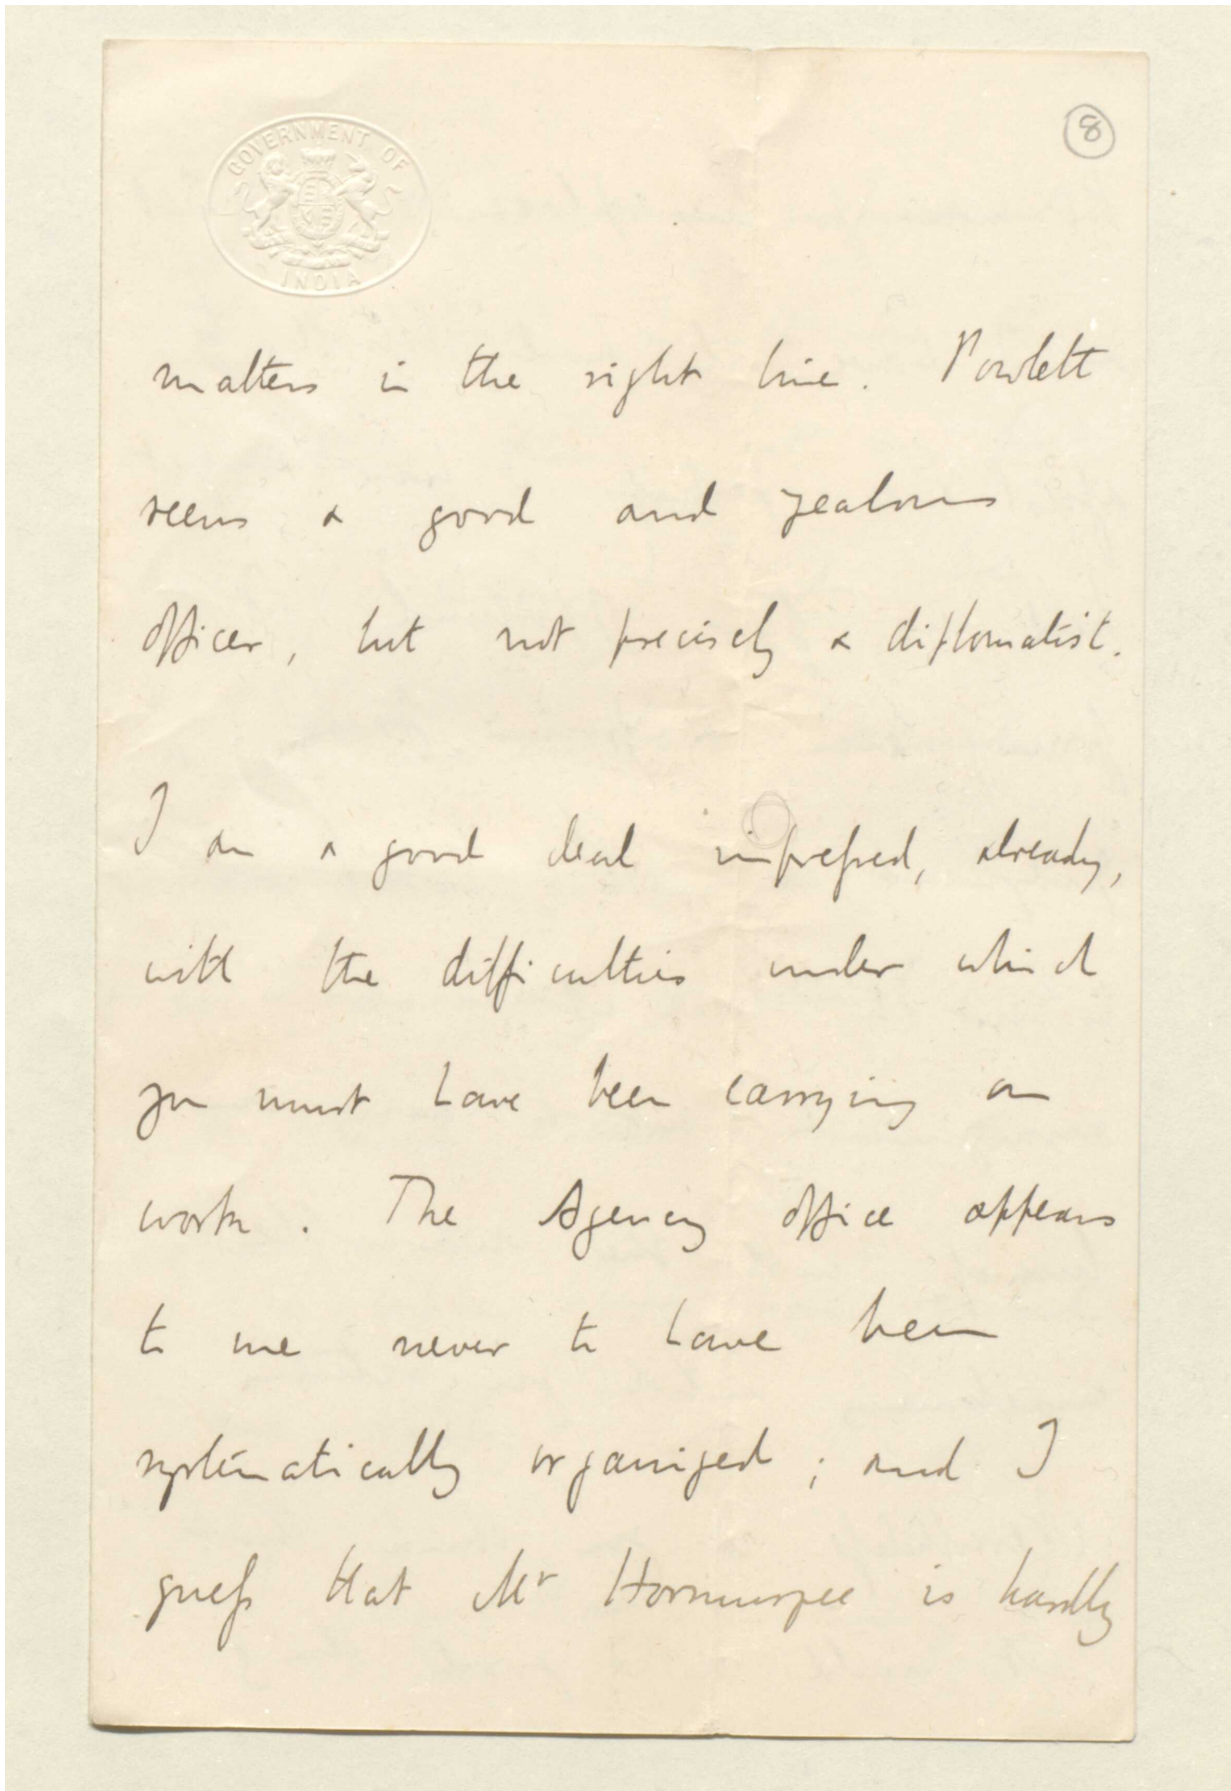 8
GOVERNMENT OF
INDIA
matters in the right line. Powlett
seems a good and zealous
officer, but not precisely a diplomatist.
I am a good deal impressed, already,
with the difficulties under which
you must have been carrying on
work. The Agency office appears
to me never to have been
systematically organized; and I
guess that Mr Hormusjee is hardly